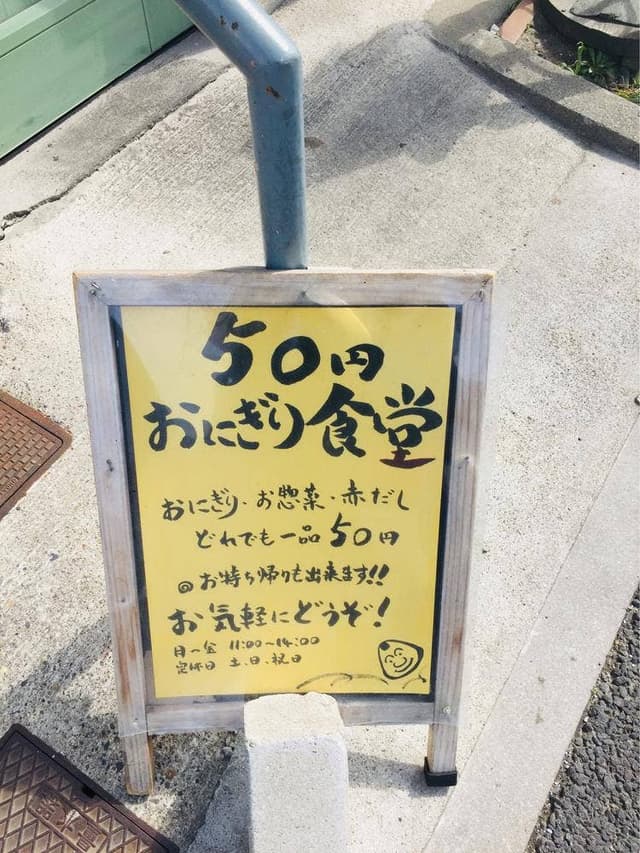 50円
おにぎり食堂
おにぎり・お惣菜・赤だし
どれでも一品50円
◎お持ち帰りも出来ます!!
お気軽にどうぞ!
月〜金 11:00〜14:00
定休日 土、日、祝日